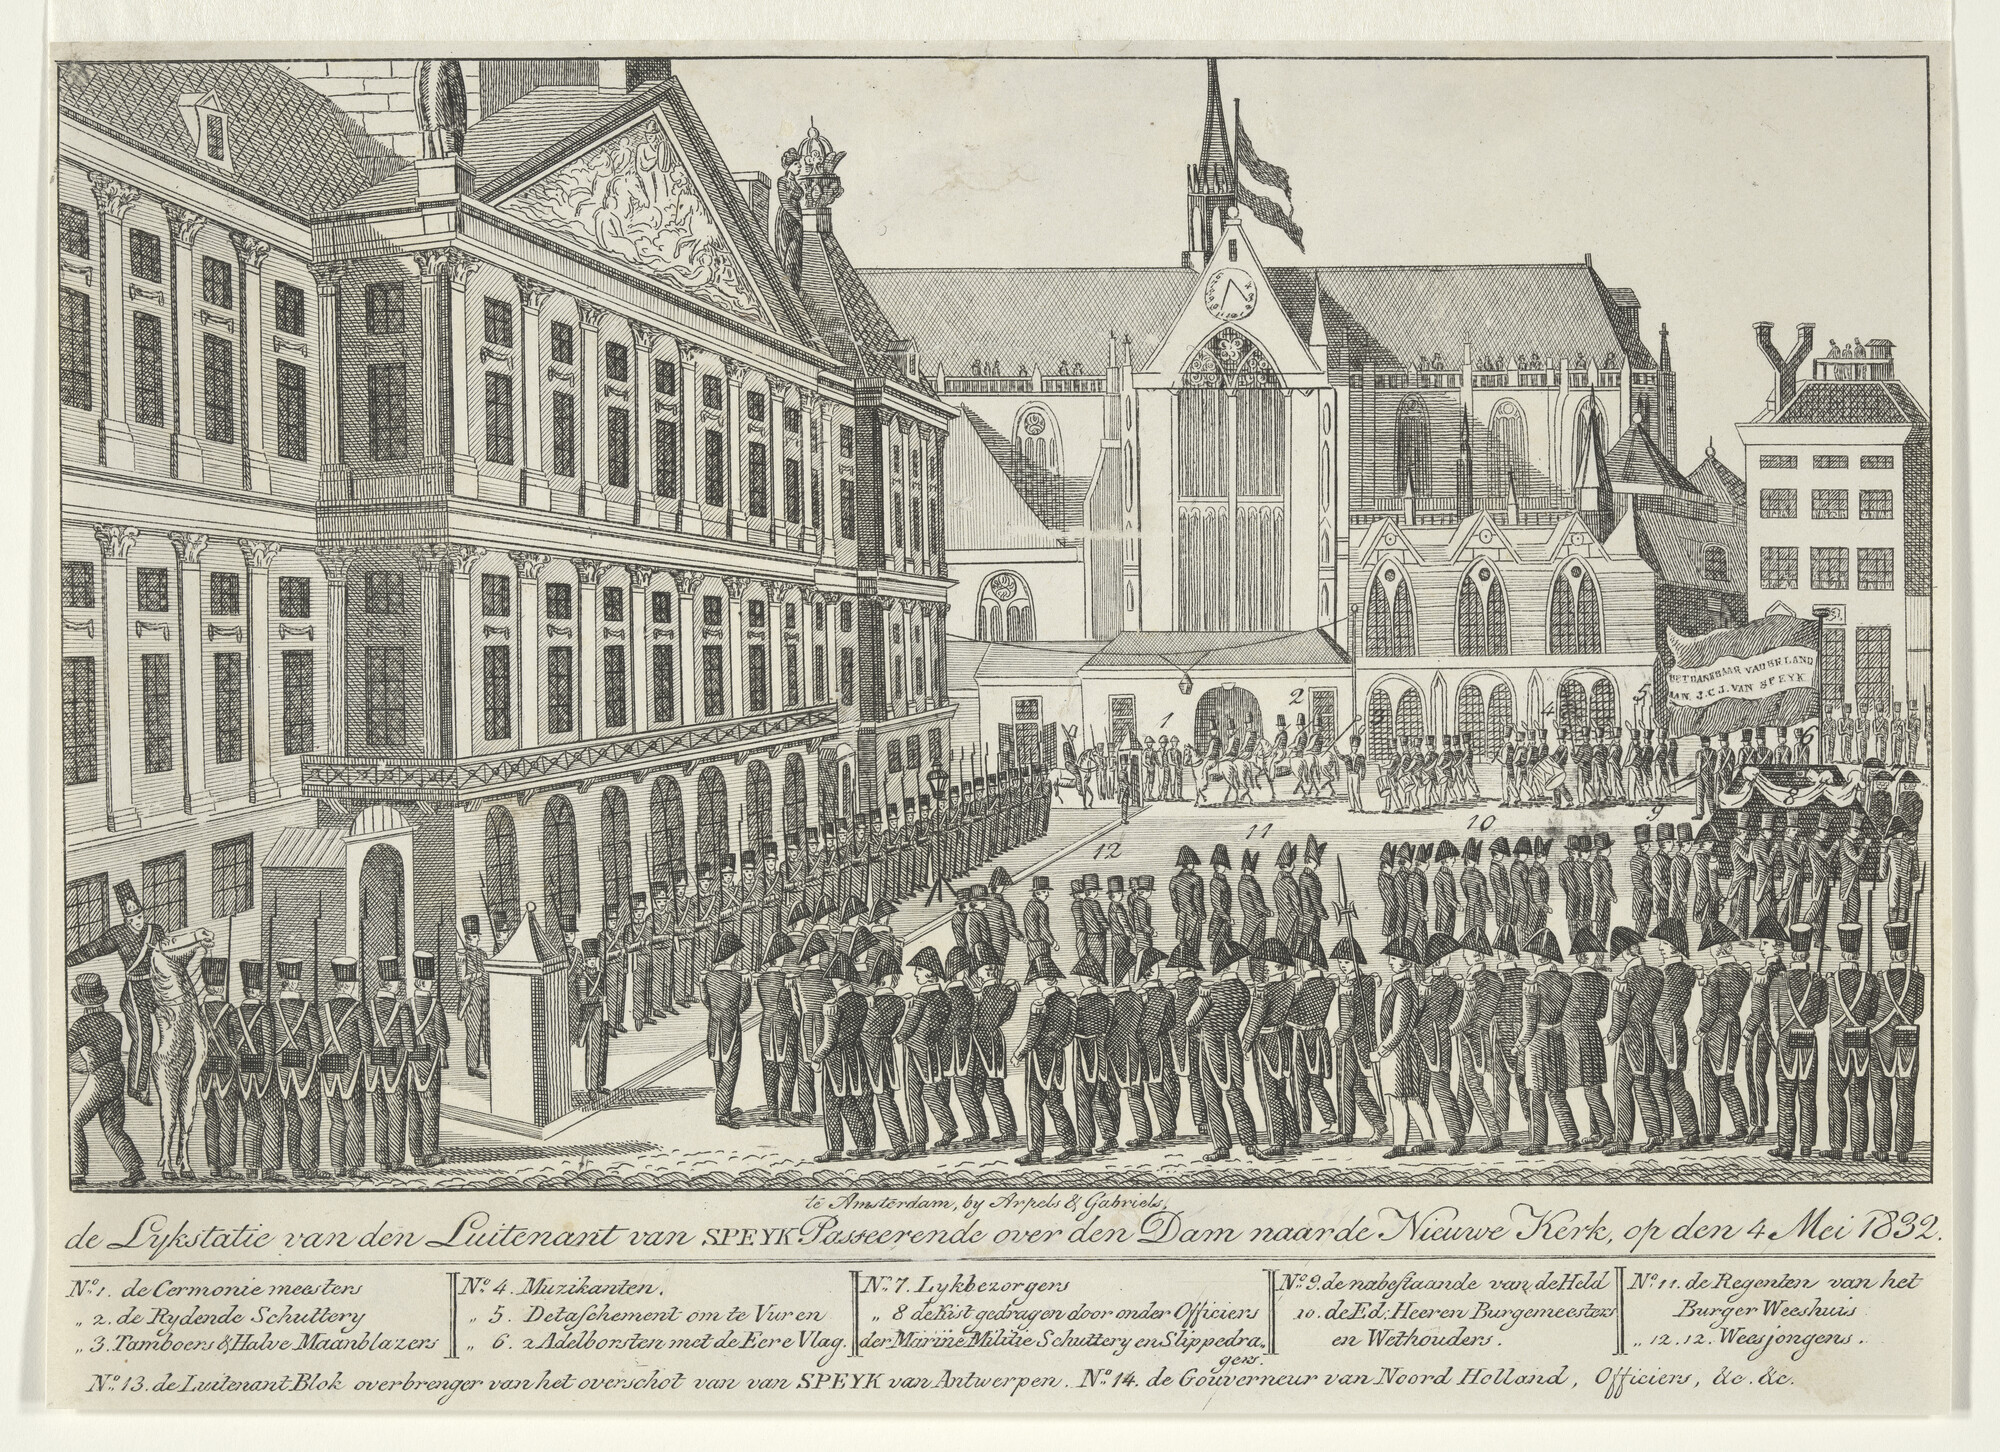 HET DANKBAAR VADERLAND
AAN J.C.J. VAN SPEYK
1
2
3
4
5
6
8
9
10
11
12
te Amsterdam, by Arpels & Gabriels,
de Lykstatie van den Luitenant van SPEYK Passeerende over den Dam naar de Nieuwe Kerk, op den 4 Mei 1832.
No. 1. de Cermonie meesters
„ 2. de Rydende Schuttery
„ 3. Tamboers & Halve Maanblazers
No. 4. Muzikanten.
„ 5. Detaschement om te Vuren
„ 6. 2 Adelborsten met de Eere Vlag.
No. 7. Lykbezorgers
„ 8 de Kist gedragen door onder Officiers
der Marine Militie Schuttery en Slippedra„
gers.
No. 9. de nabestaande van de Held
10. de Ed: Heeren Burgemeesters
en Wethouders.
No. 11. de Regenten van het
Burger Weeshuis
„ 12. 12. Weesjongens.
No. 13. de Luitenant Blok overbrenger van het overschot van van SPEYK van Antwerpen. No. 14. de Gouverneur van Noord Holland, Officiers, &c. &c.